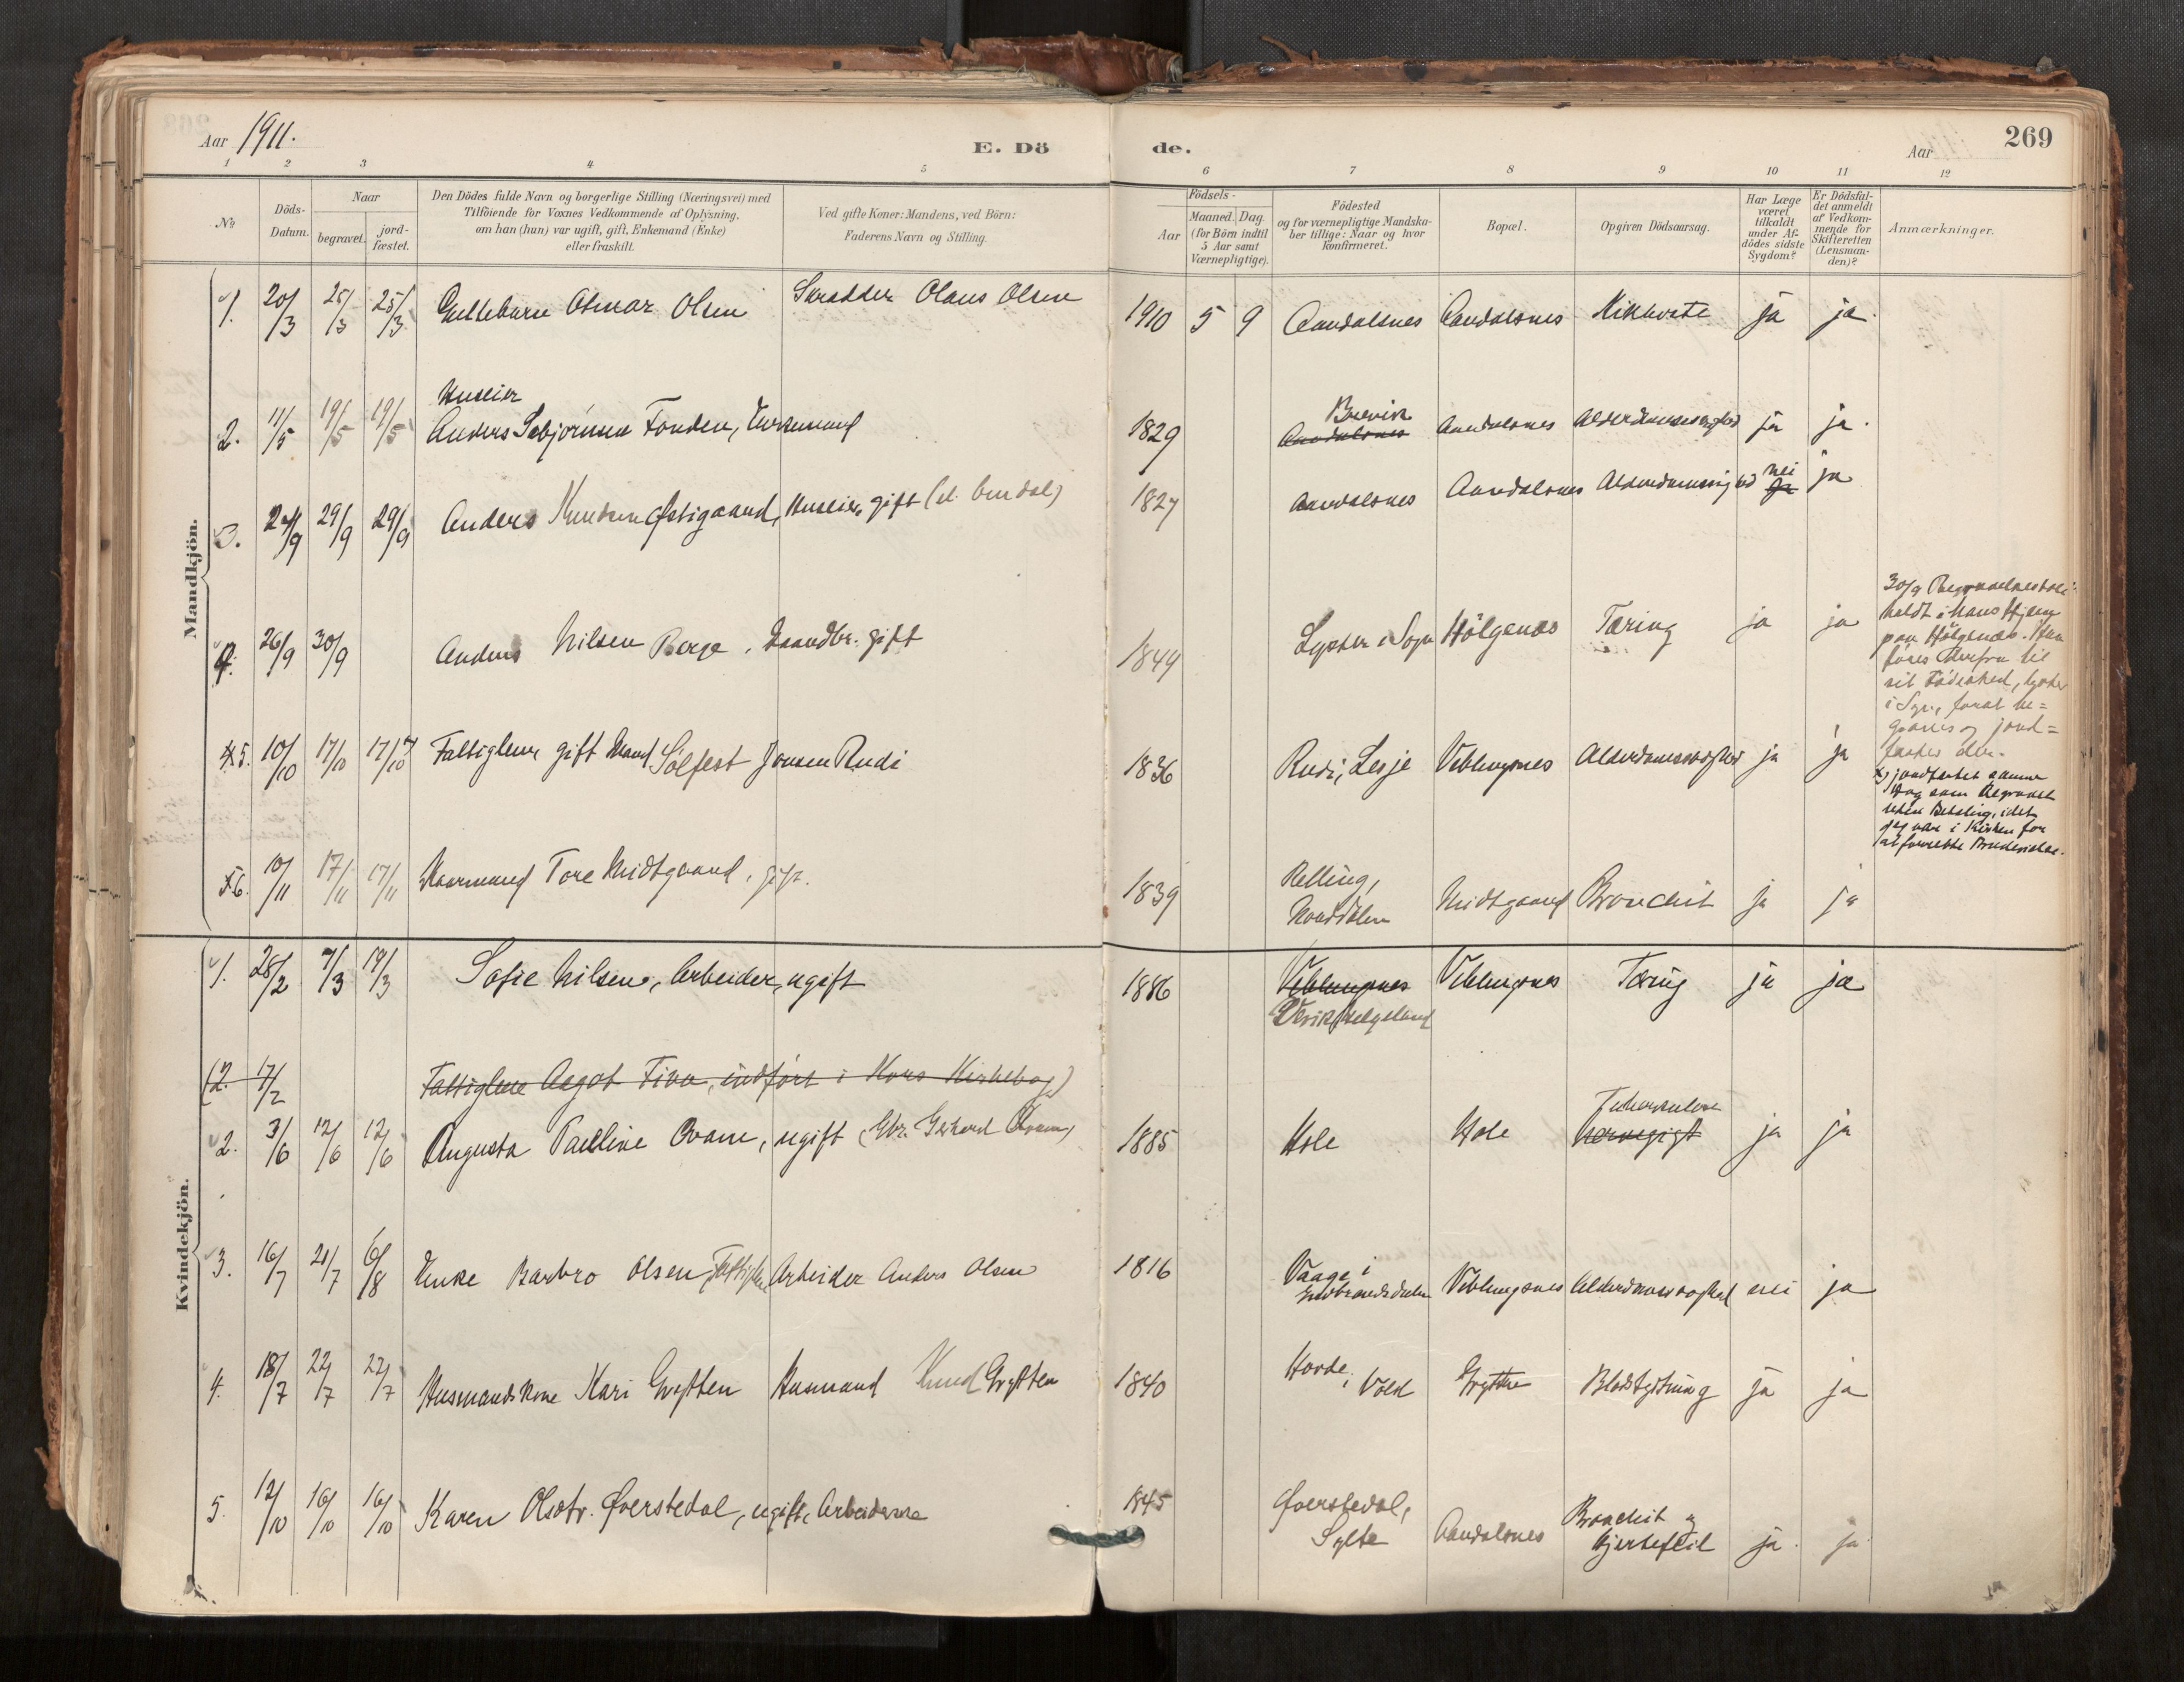 Aar 1911.
E. Döde.
Aar
269
1 2 3 4 5 6 7 8 9 10 11 12
No
Döds-Datum.
Naar
begravet.
jord-fæstet.
Den Dödes fulde Navn og borgerlige Stilling (Næringsvei) med
Tilföiende for Voxnes Vedkommende af Oplysning,
om han (hun) var ugift, gift, Enkemand (Enke)
eller fraskilt.
Ved gifte Koner: Mandens, ved Börn:
Faderens Navn og Stilling.
Födsels-
Aar
Maaned. Dag
(for Börn indtil
5 Aar samt
Værnepligtige).
Födested
og for værnepligtige Mandska-
ber tillige: Naar og hvor
konfirmeret.
Bopæl.
Opgiven Dödsaarsag.
Har Læge
været
tilkaldt
under Af-
dödes sidste
Sygdom?
Er Dödsfal-
det anmeldt
af Vedkom-
mende for
Skifteretten
(Lensman-
den)?
Anmærkninger.
Mandkjön.
1. 20/3 25/3 25/3 Pattebarn Olsen Skrædder Olaus Olsen 1910 5 9 Aandalsnes Aandalsnes Kikhoste ja ja.
Huseier
2. 11/5 19/5 19/5 Anders Fonden, Enkemand 1829 Aandalsnes Aandalsnes Alderdomssvaghed ja ja.
3. 24/9 29/9 29/9 Anders Knutsen Østigaard, Huseier, gift 1827 Aandalsnes Aandalsnes Alderdomssvaghed ja nei ja
4. 26/9 30/9 Anders Nilsen Berge, Gaardbr. gift 1849 Lyster i Sogn Hölgenes Tæring ja ja
30/9
holdt i hans Hjem
paa Hölgenes. Han
föres derfra til
sit Födested, Lyster
i Sogn, forat be=
graves og jord=
fæstes der.
5. 10/10 17/10 17/10 Fattiglem, gift Mand Sölfest Jonsen Rudi 1836 Rudi, Lesje Veblungsnes Alderdomssvaghed ja ja
x) jordfæstet samme
Dag som Begravet
uden Betaling, idet
jeg var i Kirken for
at forrette Brudevielse.
6. 10/11 17/11 17/11 Kaarmand Tore Midtgaard, gift. 1839 Relling, Norddalen Midtgaard Bronchit ja ja
Kvindekjön.
1. 28/2 7/3 19/3 Sofie Nilsen, Arbeider, ugift 1886 Veblungsnes Helgeland Veblungsnes Tæring ja ja
(2. 17/2 Fattiglem Aagot Fiva, indfört i Kors Kirkebog)
2. 3/6 12/6 12/6 Augusta Pauline Ovam, ugift 1885 Hole Hole Tuberkulose ja ja
3. 16/7 21/7 6/8 Enke Barbro Olsen, Fattiglem Arbeider Anders Olsen 1816 Vaage i Gudbrandsdalen Veblungsnes Alderdomssvaghed nei ja
4. 18/7 22/7 22/7 Husmandskone Kari Grytten Husmand Knud Grytten 1840 Vold Grytten Blodstyrtning ja ja
5. 12/10 16/10 16/10 Karen Olsdtr. Øverstedal, ugift, Arbeiderske 1845 Øverstedal, Sylte Aandalsnes Bronchit og Hjertefeil ja ja